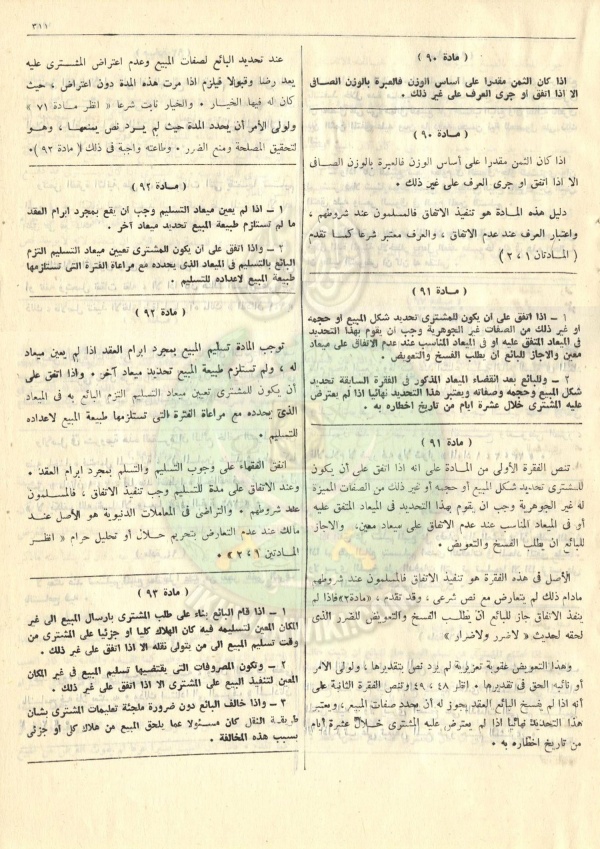 ٣١١
( مادة ٩٠ )
اذا كان الثمن مقدرا على أساس الوزن فالعبرة بالوزن الصافى
الا اذا اتفق او جرى العرف على غير ذلك .
( مادة ٩٠ )
اذا كان الثمن مقدرا على أساس الوزن فالعبرة بالوزن الصافى
الا اذا اتفق او جرى العرف على غير ذلك .
دليل هذه المادة هو تنفيذ الاتفاق فالمسلمون عند شروطهم ,
واعتبار العرف عند عدم الاتفاق , والعرف معتبر شرعا كما تقدم
( المادتان ١ ، ٢ )
( مادة ٩١ )
١ - اذا اتفق على ان يكون للمشترى تحديد شكل المبيع او حجمه
او غير ذلك من الصفات غير الجوهرية وجب ان يقوم بهذا التحديد
فى الميعاد المتفق عليه او فى الميعاد المناسب عند عدم الاتفاق على ميعاد
معين والاجاز للبائع ان يطلب الفسخ والتعويض .
٢ - وللبائع بعد انقضاء الميعاد المذكور فى الفقرة السابقة تحديد
شكل المبيع وحجمه وصفاته ويعتبر هذا التحديد نهائيا اذا لم يعترض
عليه المشترى خلال عشرة ايام من تاريخ اخطاره به .
( مادة ٩١ )
تنص الفقرة الأولى من المادة على انه اذا اتفق على أن يكون
للمشترى تحديد شكل المبيع أو حجمه أو غير ذلك من الصفات المميزة
له غير الجوهرية وجب ان يقوم بهذا التحديد فى الميعاد المتفق عليه
أو فى الميعاد المناسب عند عدم الاتفاق على ميعاد معين، والاجاز
للبائع ان يطلب الفسخ والتعويض .
الأصل فى هذه الفقرة هو تنفيذ الاتفاق فالمسلمون عند شروطهم
مادام ذلك لم يتعارض مع نص شرعى , وقد تقدم , «مادة٢» فاذا لم
ينفذ الاتفاق جاز للبائع ان يطلب الفسخ والتعويض للضرر الذى
لحقه لحديث « لاضرر ولاضرار »
وهذا التعويض عقوبة تعزيرية لم يرد نص بتقديرها , ولولى الامر
أو نائبه الحق فى تقديرها . انظر ٤٨ ، ٤٩ وتنص الفقرة الثانية على
أنه اذا لم يفسخ البائع العقد يجوز له ان يحدد صفات المبيع , ويعتبر
هذا التحديد نهائيا اذا لم يعترض عليه المشترى خلال عشرة أيام
من تاريخ اخطاره به .
عند تحديد البائع لصفات المبيع وعدم اعتراض المشترى عليه
يعد رضا وقبولا فيلزم اذا مرت هذه المدة دون اعتراض , حيث
كان له فيها الخيار . والخيار ثابت شرعا « انظر مادة ٧١ »
ولولى الأمر أن يحدد المدة حيث لم يرد نص يمنعها , وهو
لتحقيق المصلحة ومنع الضرر . وطاعته واجبة فى ذلك ( مادة ٩٢ ) .
( مادة ٩٢ )
١ - اذا لم يعين ميعاد التسليم وجب ان يقع بمجرد ابرام العقد
ما لم تستلزم طبيعة المبيع تحديد ميعاد آخر .
٢ - واذا اتفق على ان يكون للمشترى تعيين ميعاد التسليم التزم
البائع بالتسليم فى الميعاد الذى يحدده مع مراعاة الفترة التى تستلزمها
طبيعة المبيع لاعداده للتسليم .
( مادة ٩٢ )
توجب المادة تسليم المبيع بمجرد ابرام العقد اذا لم يعين ميعاد
له , ولم تستلزم طبيعة المبيع تحديد ميعاد آخر . واذا اتفق على
أن يكون للمشترى تعيين ميعاد التسليم التزم البائع به فى الميعاد
الذى يحدده مع مراعاة الفترة التى تستلزمها طبيعة المبيع لاعداده
للتسليم .
اتفق الفقهاء على وجوب التسليم والتسلم بمجرد ابرام العقد .
وعند الاتفاق على مدة للتسليم وجب تنفيذ الاتفاق , فالمسلمون
عند شروطهم . والتراضى فى المعاملات الدنيوية هو الأصل عند
مالك عند عدم التعارض بتحريم حلال أو تحليل حرام « انظر
المادتين ١ ، ٢ » .
( مادة ٩٣ )
١ - اذا قام البائع بناء على طلب المشترى بارسال المبيع الى غير
المكان المعين لتسليمه فيه كان الهلاك كليا او جزئيا على المشترى من
وقت تسليم المبيع الى من يتولى نقله الا اذا اتفق على غير ذلك .
٢ - وتكون المصروفات التى يقتضيها تسليم المبيع فى غير المكان
المعين لتنفيذ البيع على المشترى الا اذا اتفق على غير ذلك .
٣ - واذا خالف البائع دون ضرورة ملجئة تعليمات المشترى بشان
طريقة النقل كان مسئولا عما يلحق المبيع من هلاك كلى أو جزئى
بسبب هذه المخالفة .